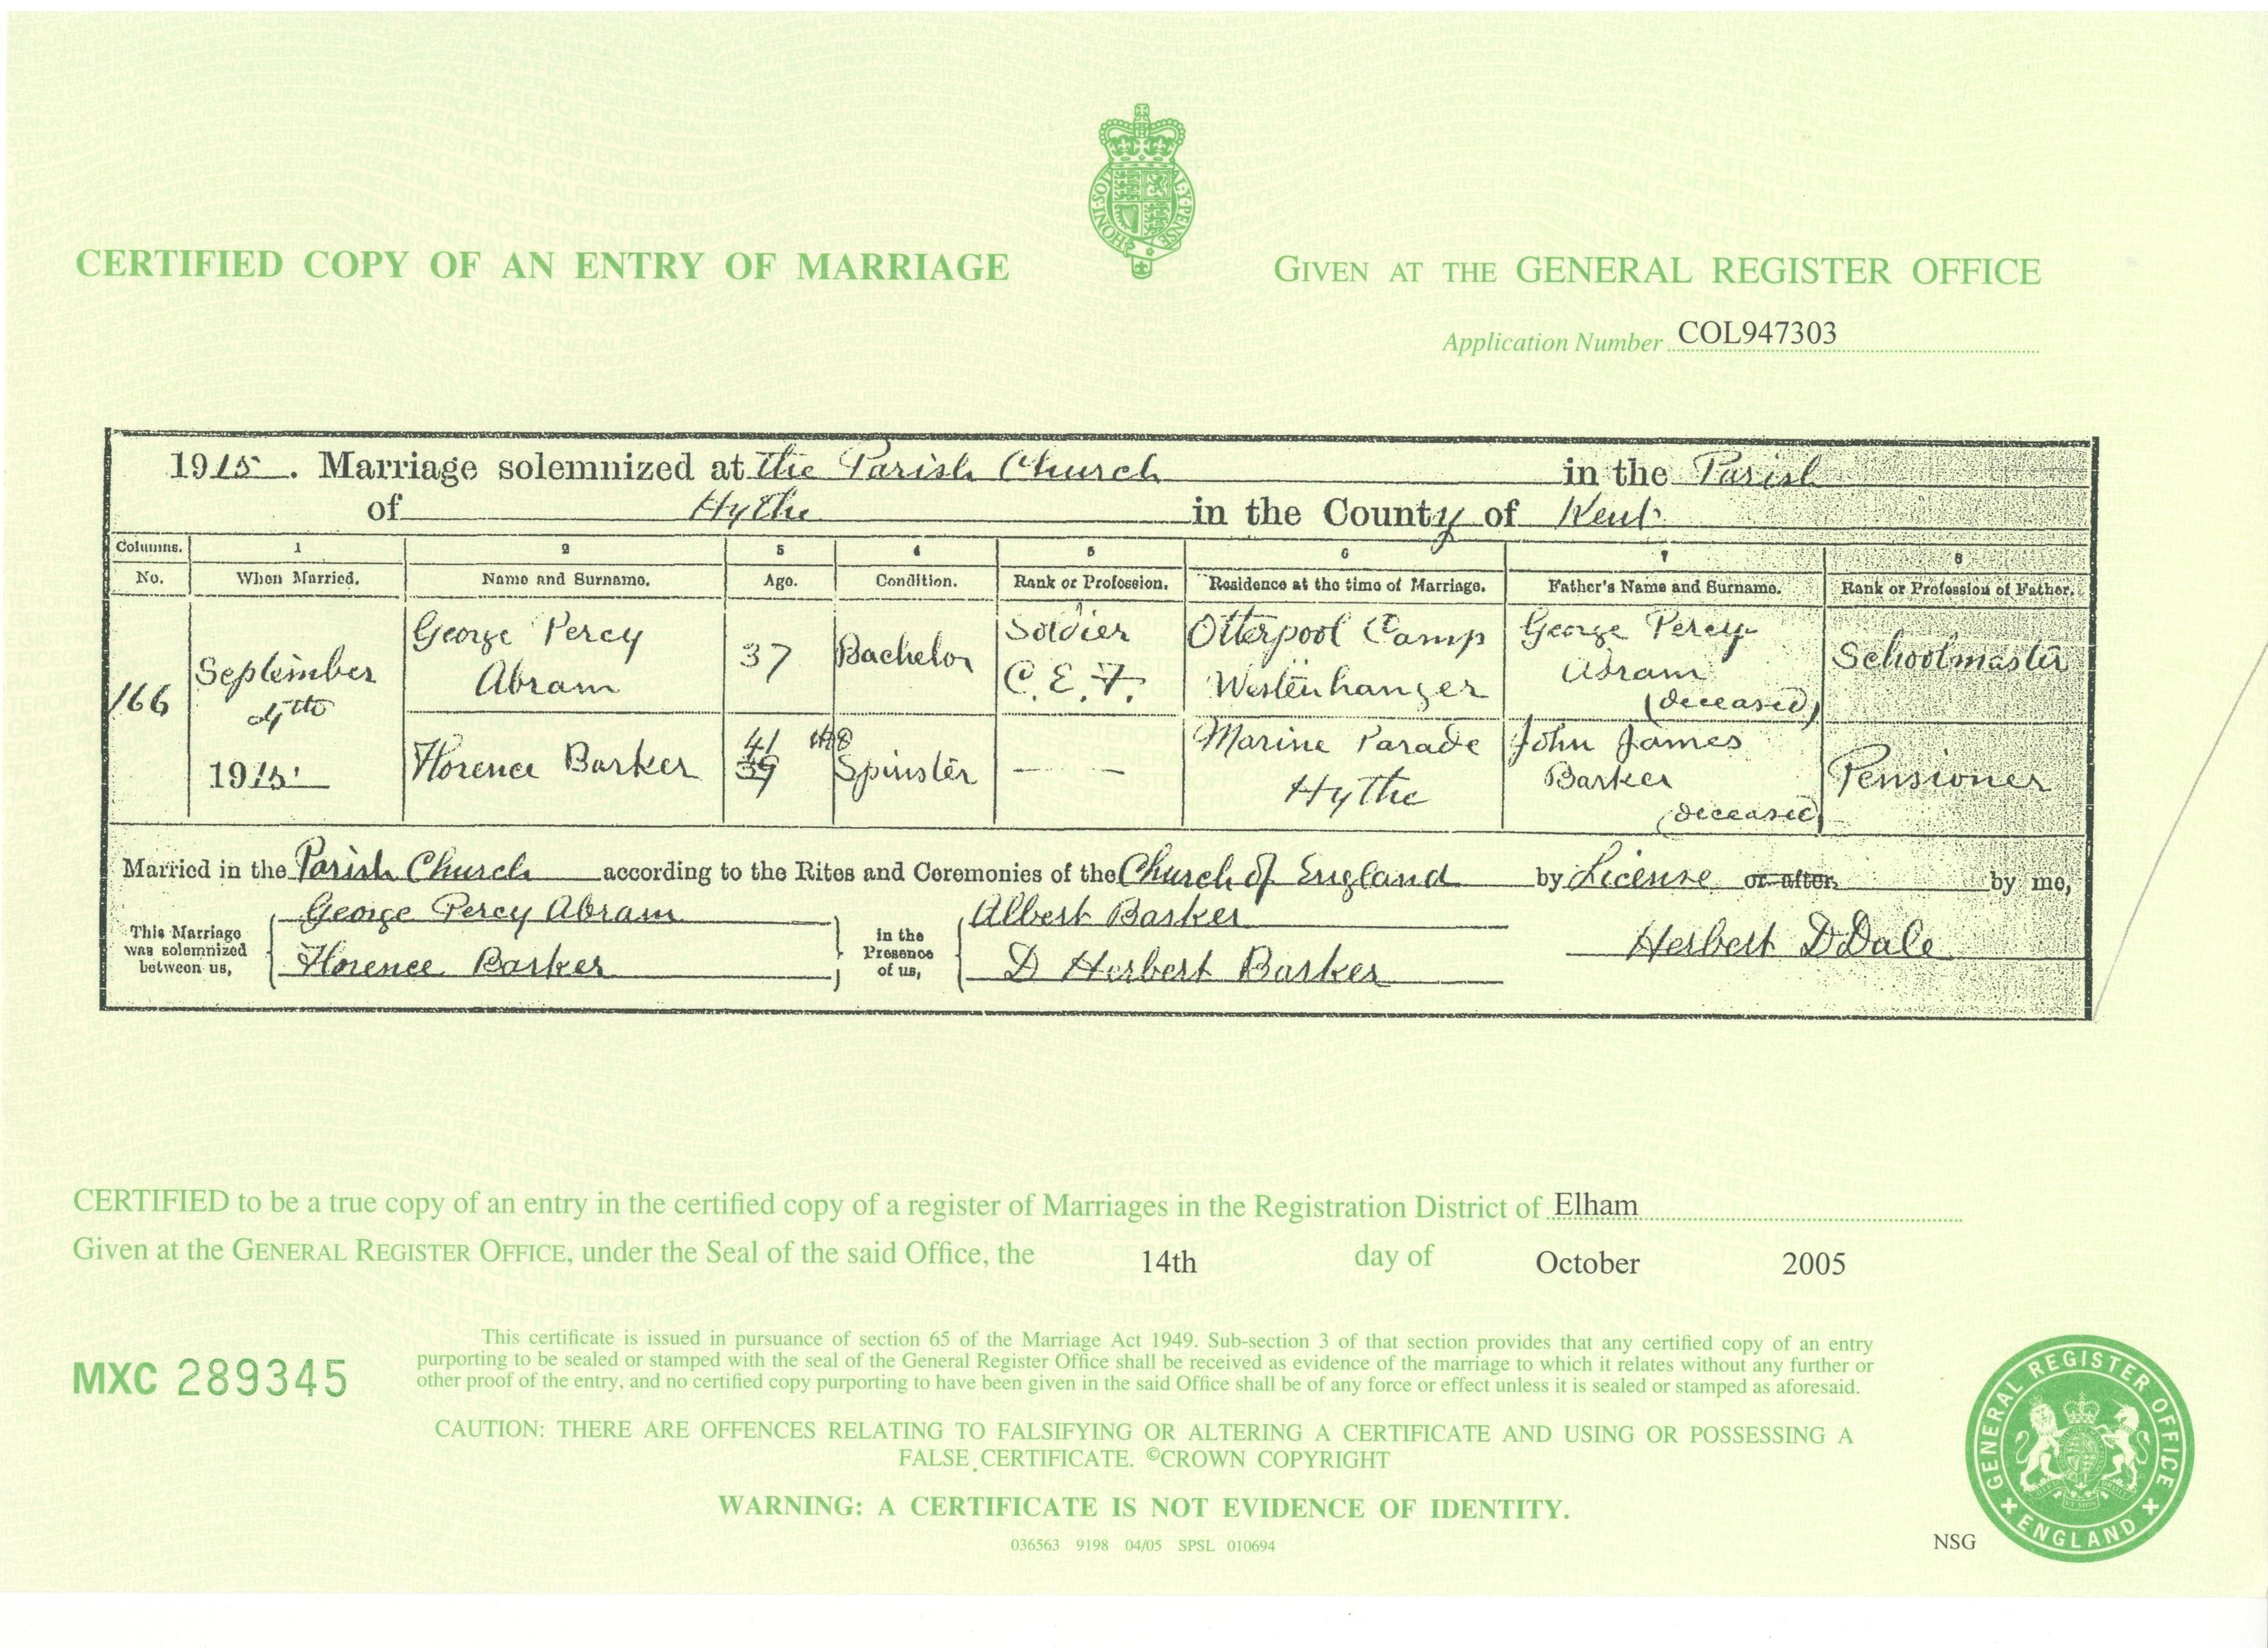 HONI·SOIT·QUI·MAL·Y·PENSE
CERTIFIED COPY OF AN ENTRY OF MARRIAGE
GIVEN AT THE GENERAL REGISTER OFFICE
Application Number COL947303
1915. Marriage solemnized at The Parish Church in the Parish
of Hythe in the County of Kent
Columns. 1 2 3 4 5 6 7 8
No. When Married. Name and Surname. Age. Condition. Rank or Profession. Residence at the time of Marriage. Father's Name and Surname. Rank or Profession of Father.
166 September 1915 George Percy Abram 37 Bachelor Soldier C.E.F. Otterpool Camp Westenhanger George Percy Abram (deceased) Schoolmaster
Florence Barker 41 39 Spinster — — Marine Parade Hythe John James Barker (deceased) Pensioner
Married in the Parish Church according to the Rites and Ceremonies of the Church of England by License or after by me,
This Marriage was solemnized between us, George Percy Abram Florence Barker in the Presence of us, Albert Barker D Herbert Barker Herbert D Dale
CERTIFIED to be a true copy of an entry in the certified copy of a register of Marriages in the Registration District of Elham
Given at the GENERAL REGISTER OFFICE, under the Seal of the said Office, the 14th day of October 2005
MXC 289345
This certificate is issued in pursuance of section 65 of the Marriage Act 1949. Sub-section 3 of that section provides that any certified copy of an entry
purporting to be sealed or stamped with the seal of the General Register Office shall be received as evidence of the marriage to which it relates without any further or
other proof of the entry, and no certified copy purporting to have been given in the said Office shall be of any force or effect unless it is sealed or stamped as aforesaid.
CAUTION: THERE ARE OFFENCES RELATING TO FALSIFYING OR ALTERING A CERTIFICATE AND USING OR POSSESSING A
FALSE CERTIFICATE. ©CROWN COPYRIGHT
WARNING: A CERTIFICATE IS NOT EVIDENCE OF IDENTITY.
036563 9198 04/05 SPSL 010694
NSG
GENERAL REGISTER OFFICE
ENGLAND